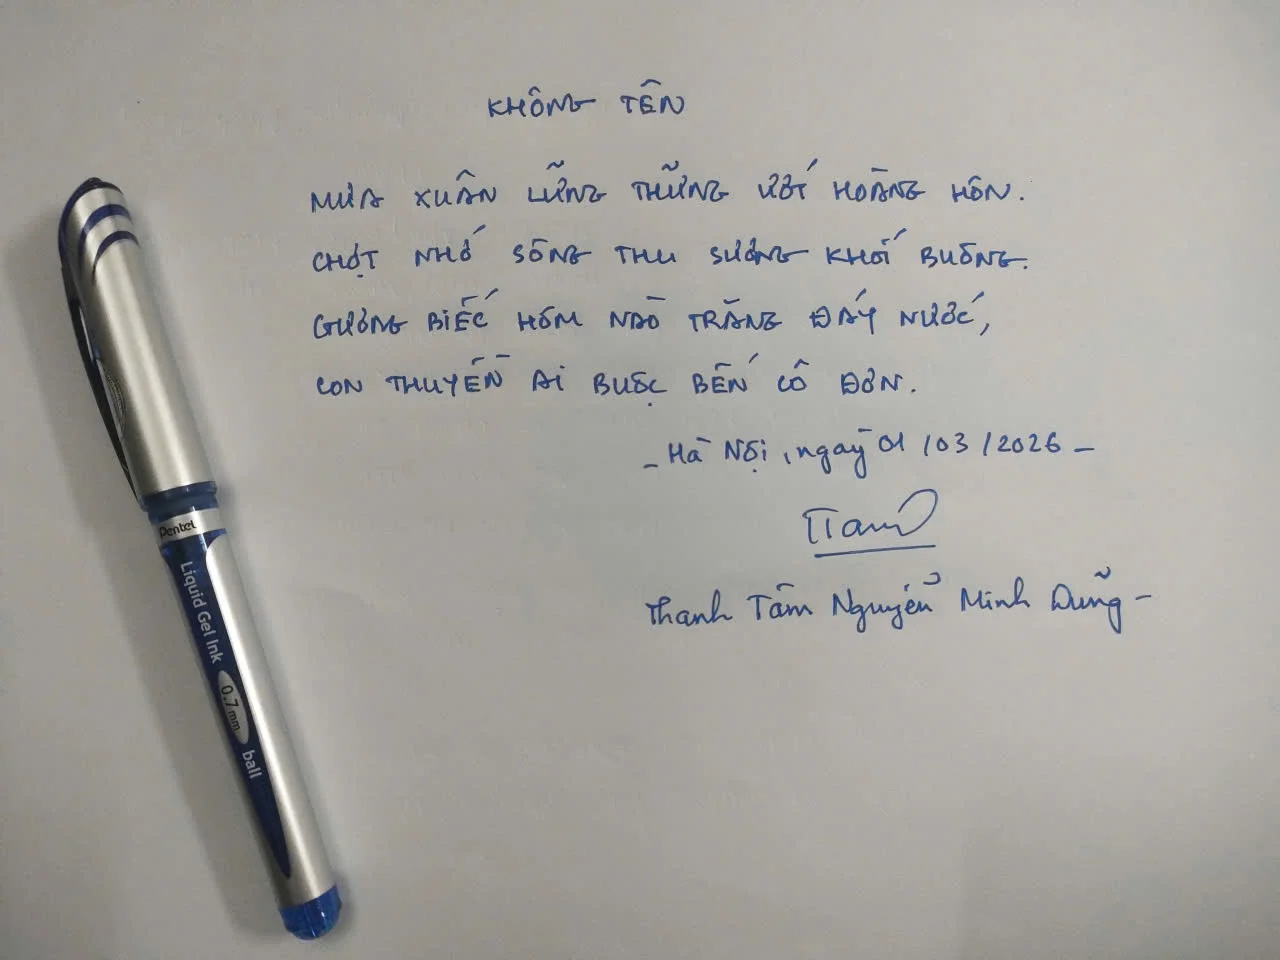 KHÔNG TÊN
MƯA XUÂN LỮNG THỮNG VỚI HOÀNG HÔN.
CHỢT NHỚ SÔNG THU SƯƠNG KHÓI BUÔNG.
GƯƠNG BIẾC HÔM NÀO TRĂNG ĐÁY NƯỚC,
CON THUYỀN AI BUỘC BẾN CÔ ĐƠN.
- Hà Nội, ngày 01/03/2026 -
Thanh Tâm Nguyễn Minh Dũng -
Pentel
Liquid Gel Ink
0.7mm
ball